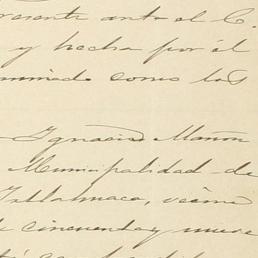 presente ante el C.
y hecha por él
minado como los
Ignacio Mañon
Municipalidad de
vecino
de cincuenta y nueve